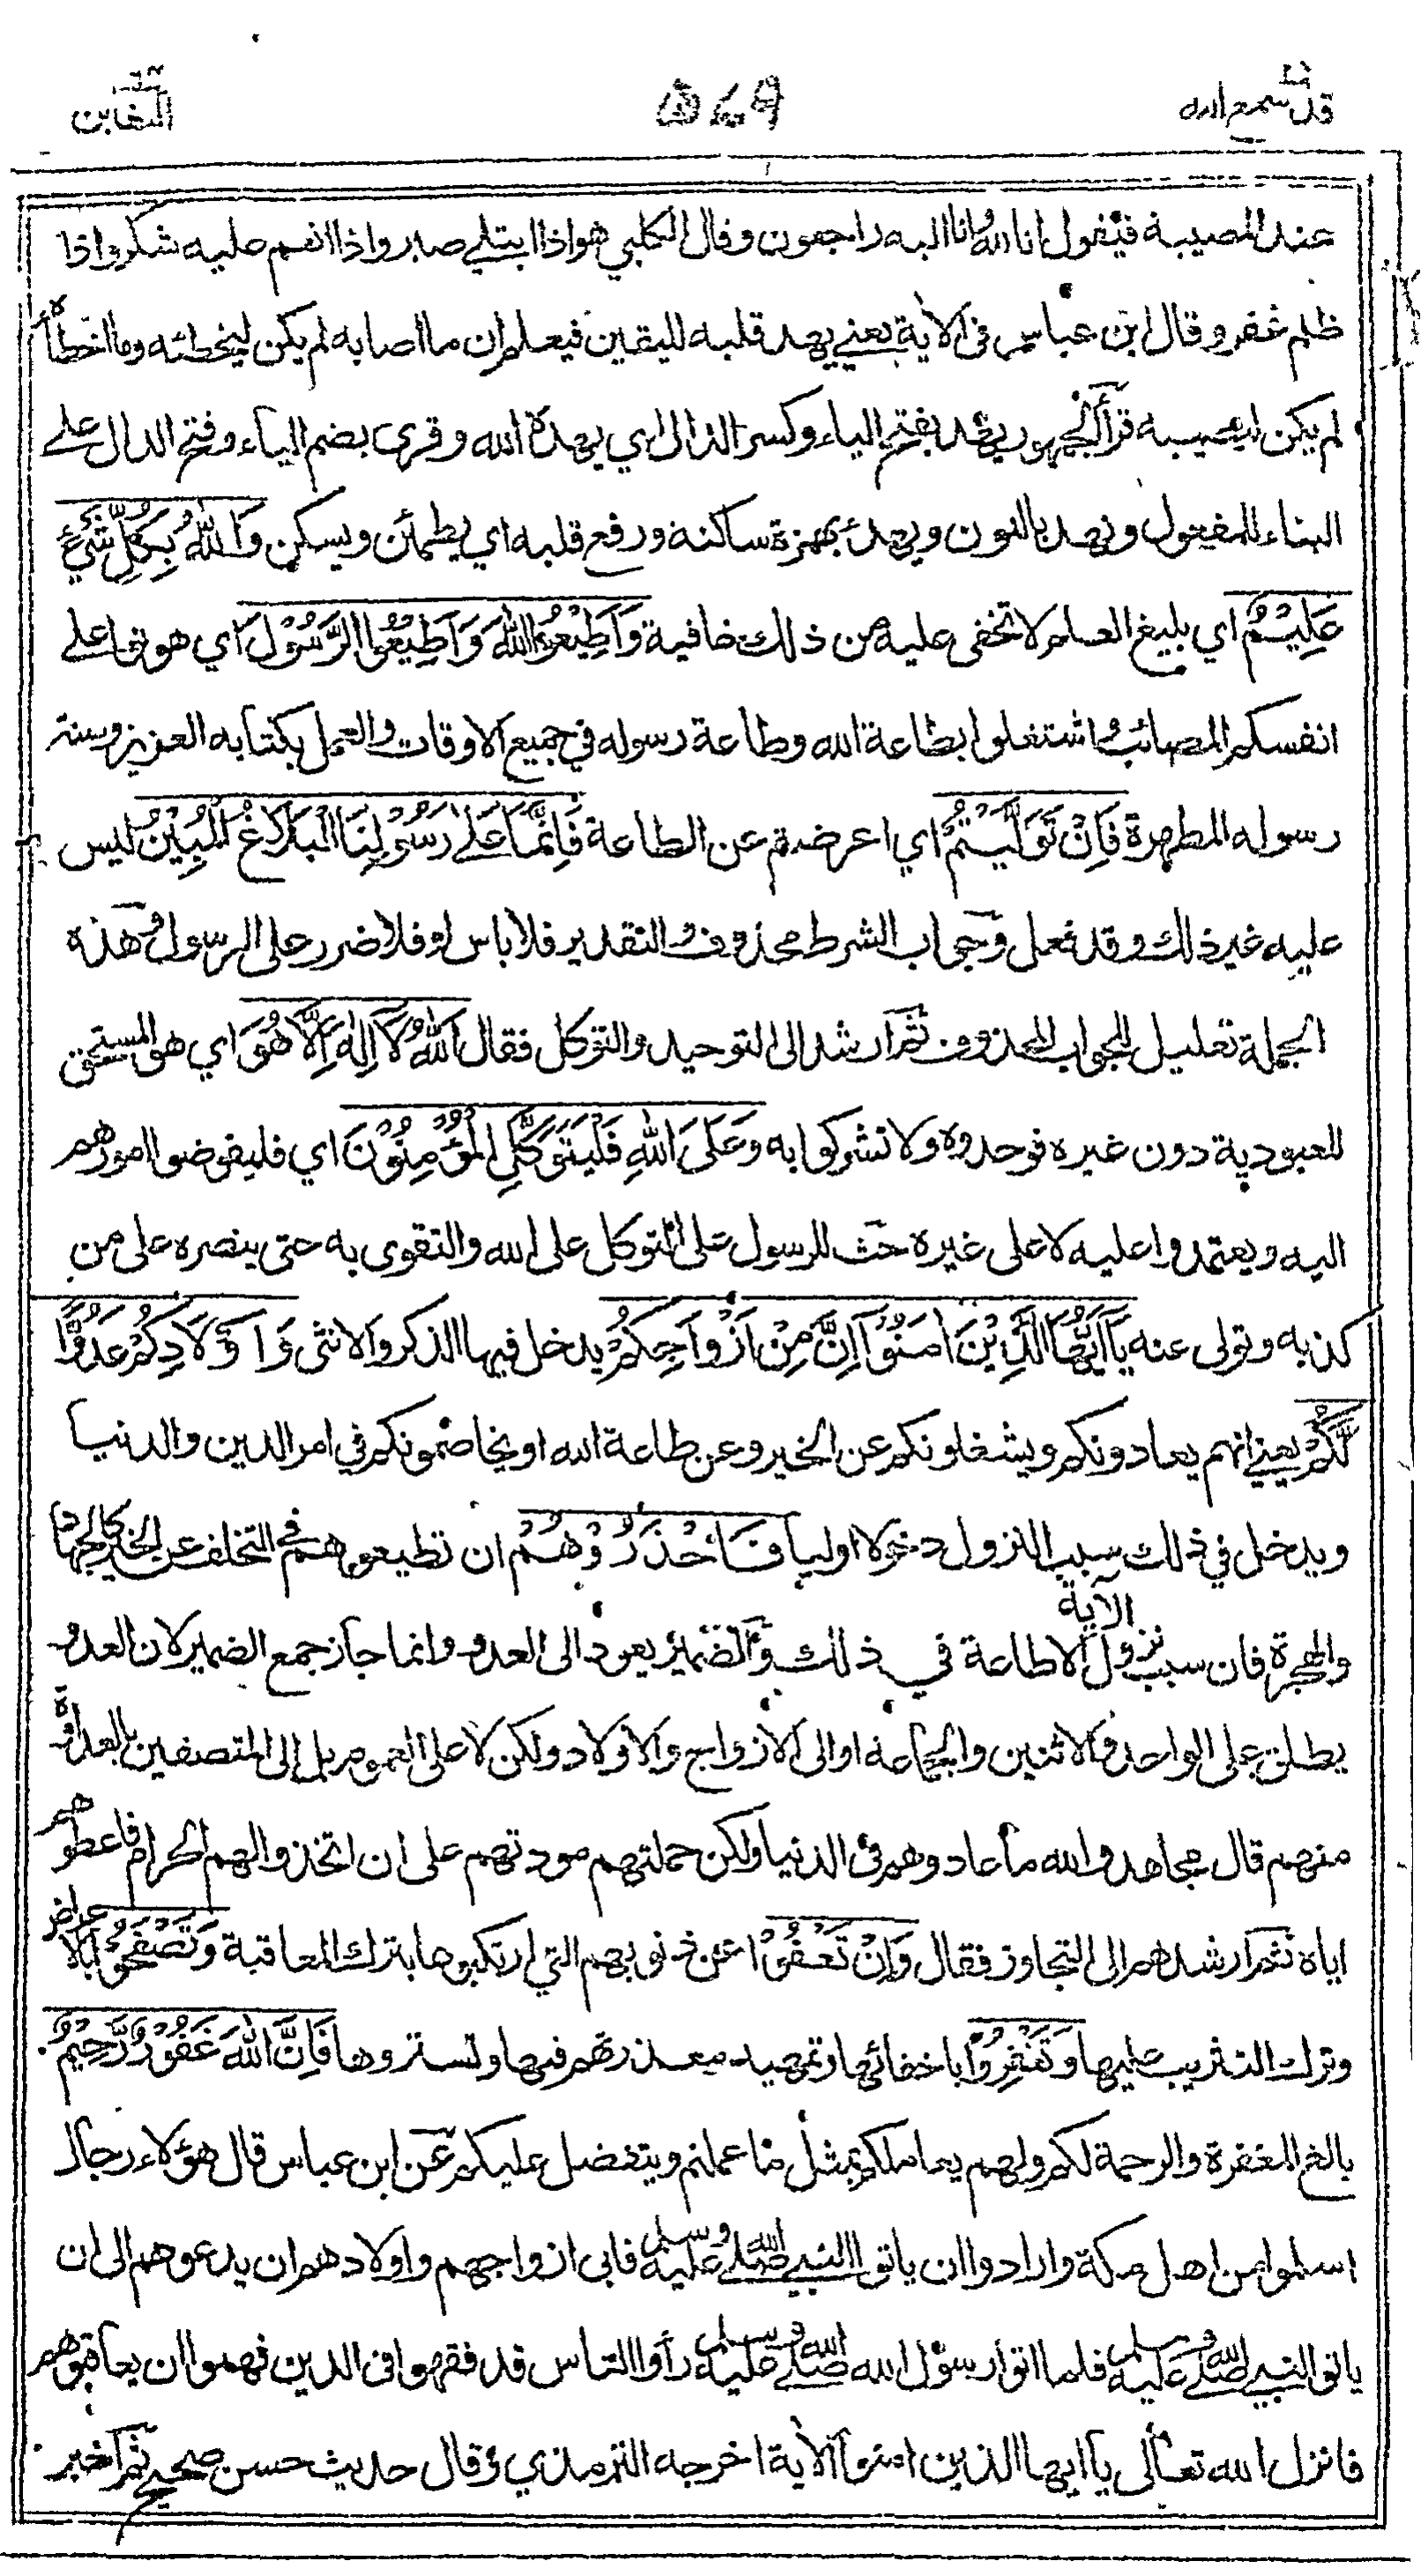 قد سمع الله ٥٤٩ التغابن
عند المصيبة فيقول انا لله وانا اليه راجعون وقال الكلبي هو اذا ابتلي صبر واذا انعم عليه شكر واذا
ظلم غفر وقال ابن عباس في الاية يعني يهد قلبه لليقين فيعلم ان ما اصابه لم يكن ليخطئه وما اخطأه
لم يكن ليصيبه قرأ الجمهور يهد بفتح الياء وكسر الدال اي يهده الله وقرئ بضم الياء وفتح الدال على
البناء للمفعول ونهد بالنون ويهدئ بهمزة ساكنه ورفع قلبه اي يطمئن ويسكن وَاللهُ بِكُلِّ شَيْءٍ
عَلِيْمٌ اي بليغ العلم لا تخفى عليه من ذلك خافية وَاَطِيْعُوا اللهَ وَاَطِيْعُوا الرَّسُوْلَ اي هونوا على
انفسكم المصائب واشتغلوا بطاعة الله وطاعة رسوله في جميع الاوقات والعمل بكتابه العزيز وسنة
رسوله المطهرة فَاِنْ تَوَلَّيْتُمْ اي اعرضتم عن الطاعة فَاِنَّمَا عَلٰى رَسُوْلِنَا الْبَلَاغُ الْمُبِيْنُ ليس
عليه غير ذلك وقد فعل وجواب الشرط محذوف والتقدير فلا باس او فلا ضرر على الرسول وهذه
الجملة تعليل للجواب المحذوف ثم ارشد الى التوحيد والتوكل فقال اَللهُ لَا اِلٰهَ اِلَّا هُوَ اي هو المستحق
للعبودية دون غيره فوحدوه ولا تشركوا به وَعَلَى اللهِ فَلْيَتَوَكَّلِ الْمُؤْمِنُوْنَ اي فليفوضوا امورهم
اليه ويعتمدوا عليه لا على غيره حث للرسول على التوكل على الله والتقوى به حتى ينصره على من
كذبه وتولى عنه يَا اَيُّهَا الَّذِيْنَ اٰمَنُوْا اِنَّ مِنْ اَزْوَاجِكُمْ يدخل فيها الذكر والانثى وَاَوْلَادِكُمْ عَدُوًّا
لَّكُمْ يعني انهم يعادونكم ويشغلونكم عن الخير وعن طاعة الله او يخاصمونكم في امر الدين والدنيا
ويدخل في ذلك سبب النزول دخولا اوليا فَاحْذَرُوْهُمْ ان تطيعوهم في التخلف عن الخير كالجهاد
والهجرة فان سبب نزول الآية الاطاعة في ذلك والضمير يعود الى العدو وانما جاز جمع الضمير لان العدو
يطلق على الواحد والاثنين والجماعة او الى الازواج والاولاد ولكن لا على العموم بل الى المتصفين بالعداوة
منهم قال مجاهد والله ما عادوهم في الدنيا ولكن حملتهم مودتهم على ان اتخذوا لهم الحرام فاعطوهم
اياه ثم ارشدهم الى التجاوز فقال وَاِنْ تَعْفُوْا عن ذنوبهم التي ارتكبوها بترك المعاقبة وَتَصْفَحُوْا بالاعراض
وترك التثريب عليها وَتَغْفِرُوْا باخفائها وتمهيد معذرتهم فيها وتستروها فَاِنَّ اللهَ غَفُوْرٌ رَّحِيْمٌ
بالغ المغفرة والرحمة لكم ولهم يعاملكم بمثل ما عملتم ويتفضل عليكم عن ابن عباس قال هؤلاء رجال
اسلموا من اهل مكة وارادوا ان ياتوا النبي صلى الله عليه وسلم فابى ازواجهم واولادهم ان يدعوهم الى ان
ياتوا النبي صلى الله عليه وسلم فلما اتوا رسول الله صلى الله عليه وسلم رأوا الناس قد فقهوا في الدين فهموا ان يعاقبوهم
فانزل الله تعالى يا ايها الذين امنوا الآية اخرجه الترمذي وقال حديث حسن صحيح ثم اخبر